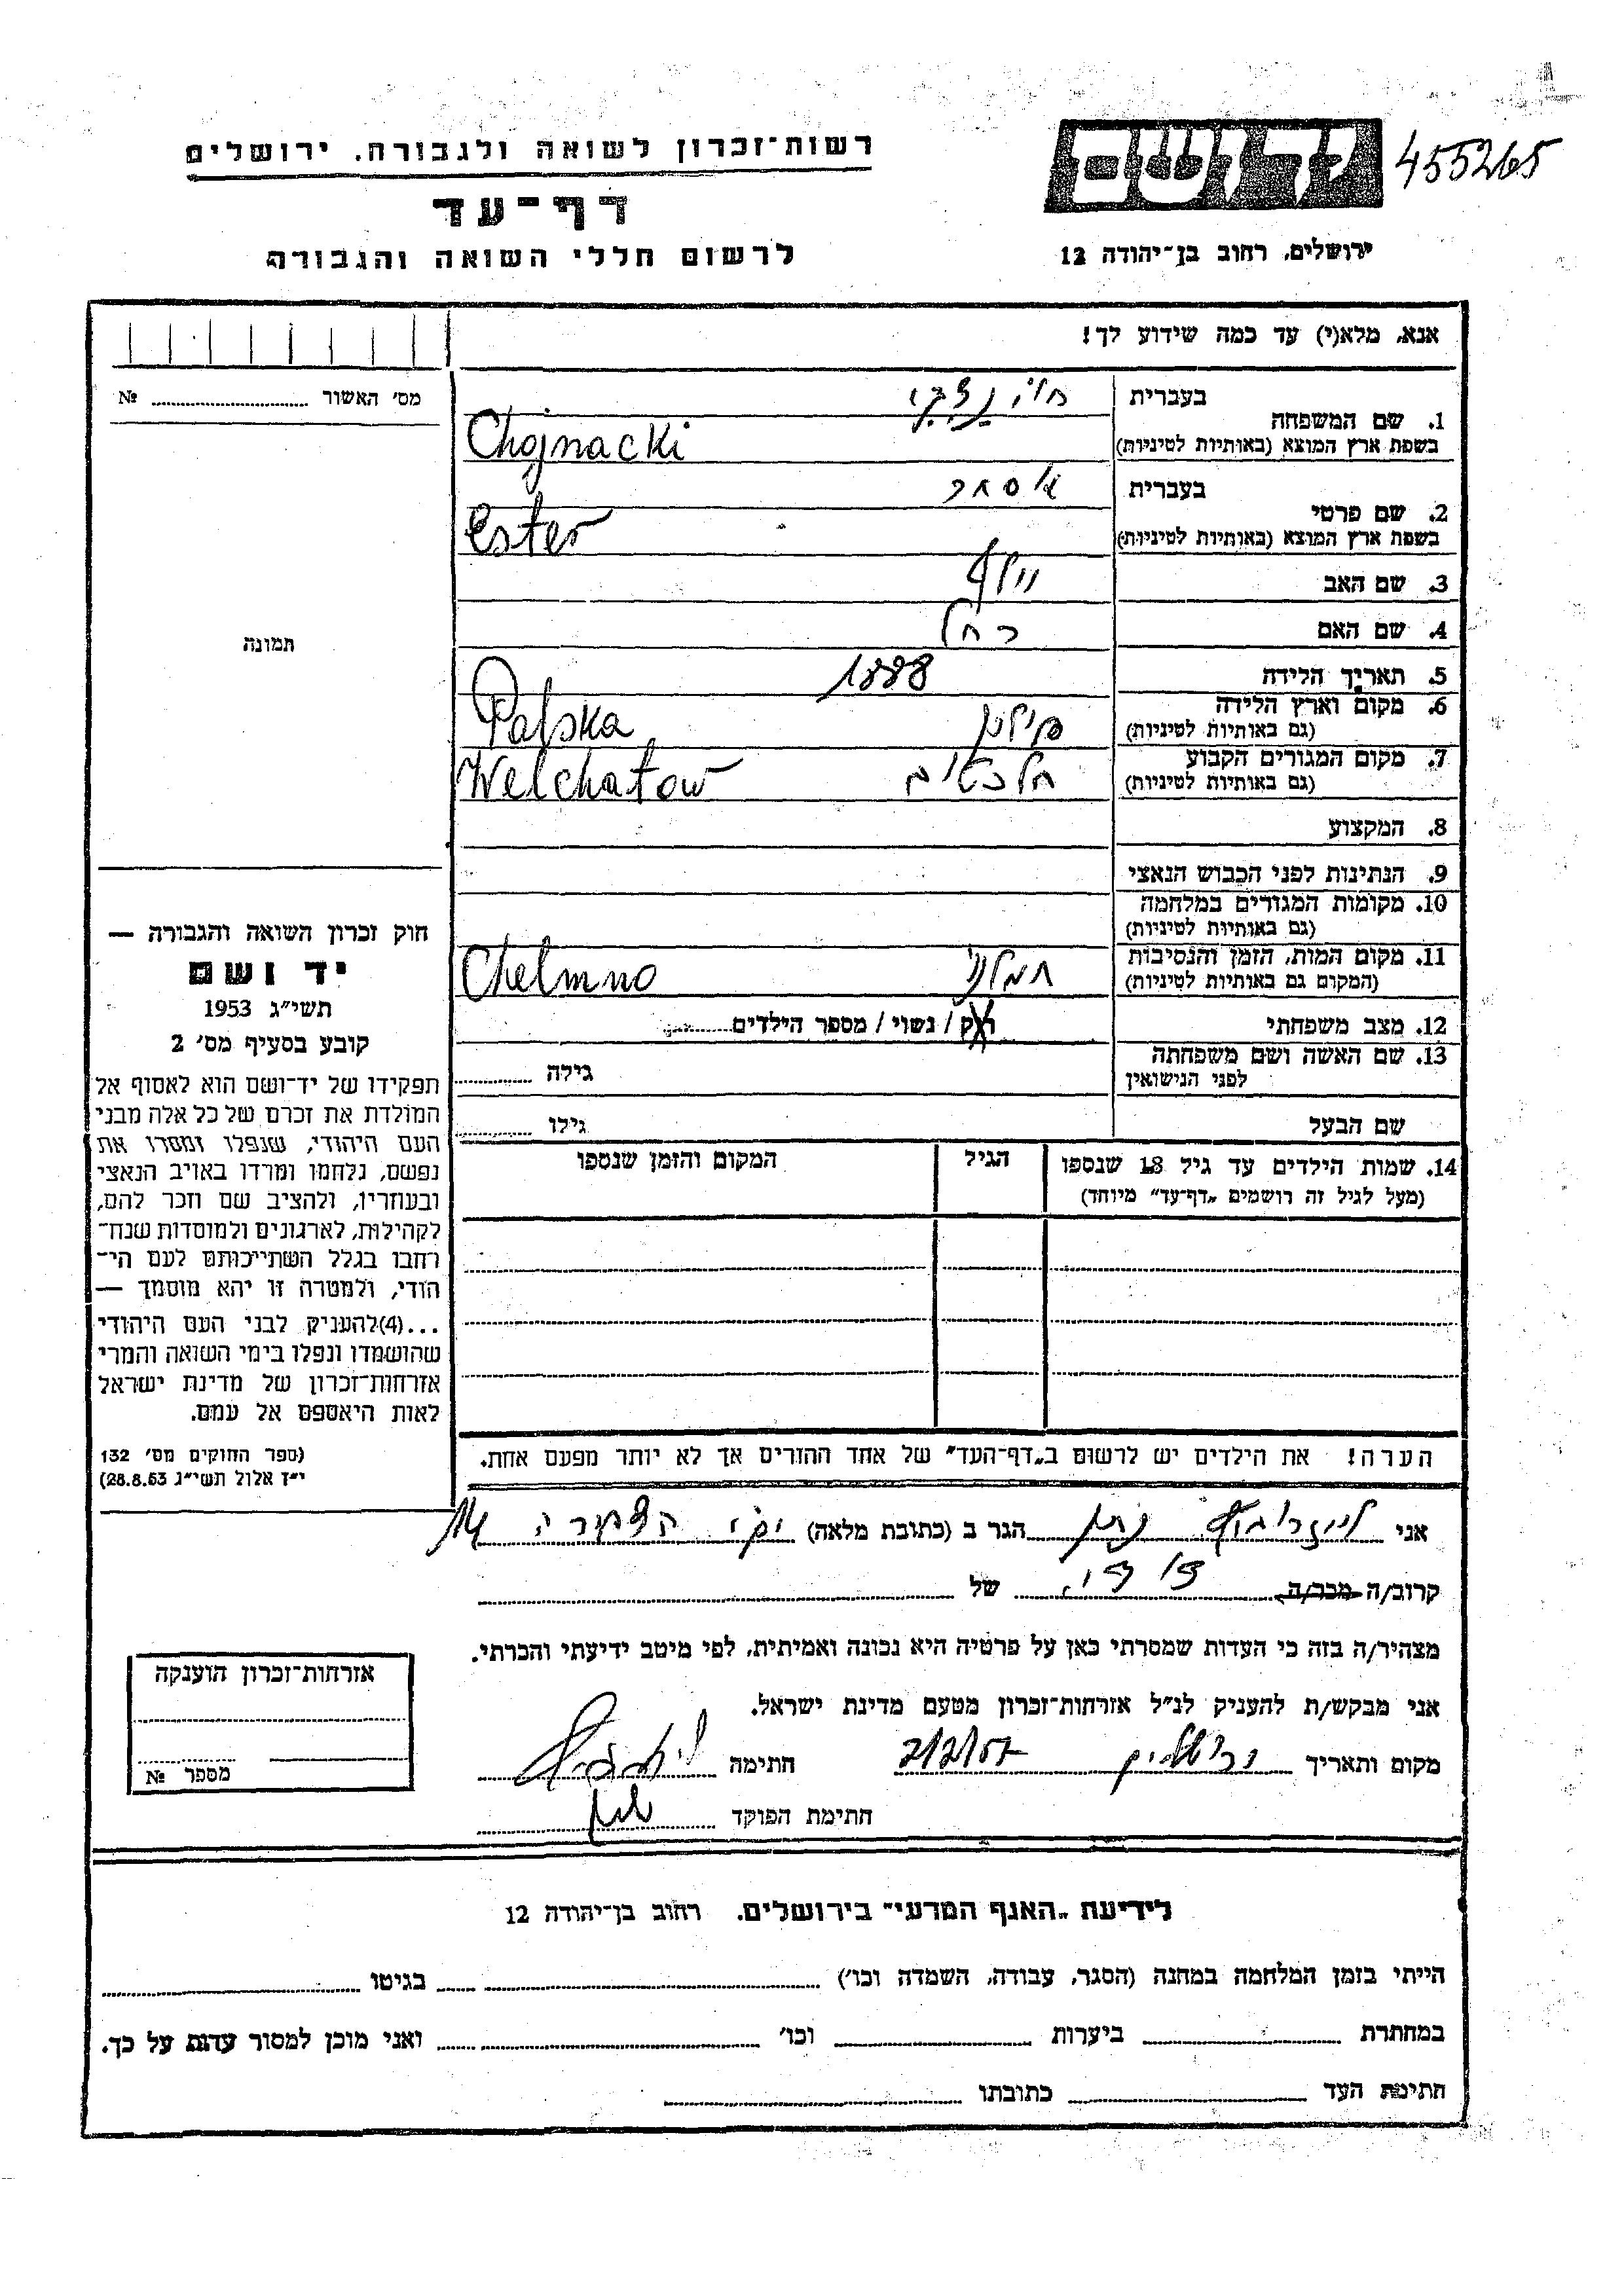 455265
יד ושם
רשות־זכרון לשואה ולגבורה. ירושלים
דף־עד
לרשום חללי השואה והגבורה
ירושלים, רחוב בן־יהודה 12
אנא, מלא(י) עד כמה שידוע לך!
מס' האשור № ........
תמונה
חוק זכרון השואה והגבורה —
יד ושם
תשי"ג 1953
קובע בסעיף מס' 2
תפקידו של יד־ושם הוא לאסוף אל
המולדת את זכרם של כל אלה מבני
העם היהודי, שנפלו ומסרו את
נפשם, נלחמו ומרדו באויב הנאצי
ובעוזריו, ולהציב שם וזכר להם,
לקהילות, לארגונים ולמוסדות שנח־
רבו בגלל השתייכותם לעם הי־
הודי, ולמטרה זו יהא מוסמך —
...(4)להעניק לבני העם היהודי
שהושמדו ונפלו בימי השואה והמרי
אזרחות־זכרון של מדינת ישראל
לאות היאספם אל עמם.
(ספר החוקים מס' 132
י"ז אלול תשי"ג 28.8.53)
בעברית חוינצקי
1. שם המשפחה
בשפת ארץ המוצא (באותיות לטיניות) Chojnacki
בעברית אסתר
2. שם פרטי
בשפת ארץ המוצא (באותיות לטיניות) Ester
3. שם האב וולף
4. שם האם רחל
5. תאריך הלידה 1888
6. מקום וארץ הלידה
(גם באותיות לטיניות) פולין Palska
7. מקום המגורים הקבוע
(גם באותיות לטיניות) Welchatow
8. המקצוע
9. הנתינות לפני הכבוש הנאצי
10. מקומות המגורים במלחמה
(גם באותיות לטיניות)
11. מקום המות, הזמן והנסיבות
(המקום גם באותיות לטיניות) חמלנו Chelmno
12. מצב משפחתי רוק / נשוי / מספר הילדים........
13. שם האשה ושם משפחתה
לפני הנישואין גילה ........
שם הבעל גילו ........
14. שמות הילדים עד גיל 18 שנספו
(מעל לגיל זה רושמים „דף־עד" מיוחד)
הגיל
המקום והזמן שנספו
הערה! את הילדים יש לרשום ב„דף־העד" של אחד ההורים אך לא יותר מפעם אחת.
אני נתן הגר ב (כתובת מלאה) 14
קרוב/ה מכר/ה דודה של
מצהיר/ה בזה כי העדות שמסרתי כאן על פרטיה היא נכונה ואמיתית, לפי מיטב ידיעתי והכרתי.
אני מבקש/ת להעניק לנ"ל אזרחות־זכרון מטעם מדינת ישראל.
מקום ותאריך ירושלים 2/2/57 חתימה
חתימת הפוקד
אזרחות־זכרון הוענקה
מספר №
לידיעת „האגף המדעי" בירושלים. רחוב בן־יהודה 12
הייתי בזמן המלחמה במחנה (הסגר, עבודה, השמדה וכו') בגיטו
במחתרת ביערות וכו' ואני מוכן למסור עדות על כך.
חתימת העד כתובתו